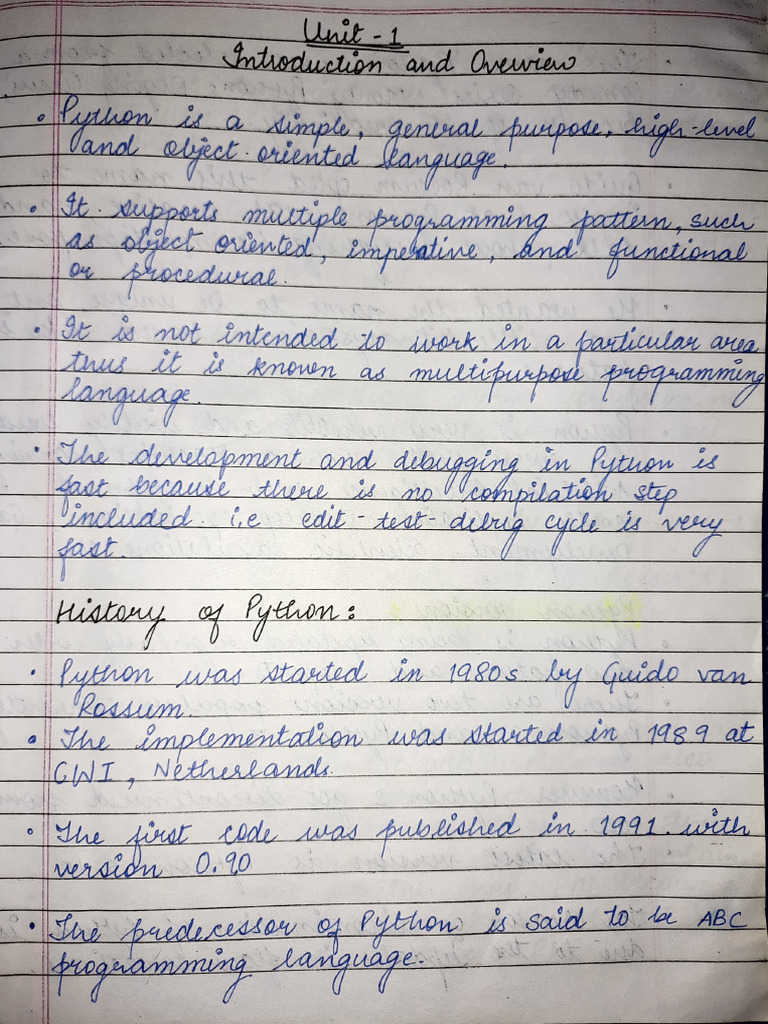 Unit - 1
Introduction and Overview
• Python is a simple, general purpose, high-level
and object-oriented language.
• It supports multiple programming pattern, such
as object oriented, imperative, and functional
or procedural.
• It is not intended to work in a particular area
thus it is known as multipurpose programming
language.
• The development and debugging in Python is
fast because there is no compilation step
included i.e edit-test-debug cycle is very
fast.
History of Python:
• Python was started in 1980s by Guido van
Rossum.
• The implementation was started in 1989 at
CWI, Netherlands.
• The first code was published in 1991 with
version 0.90
• The predecessor of Python is said to be ABC
programming language.